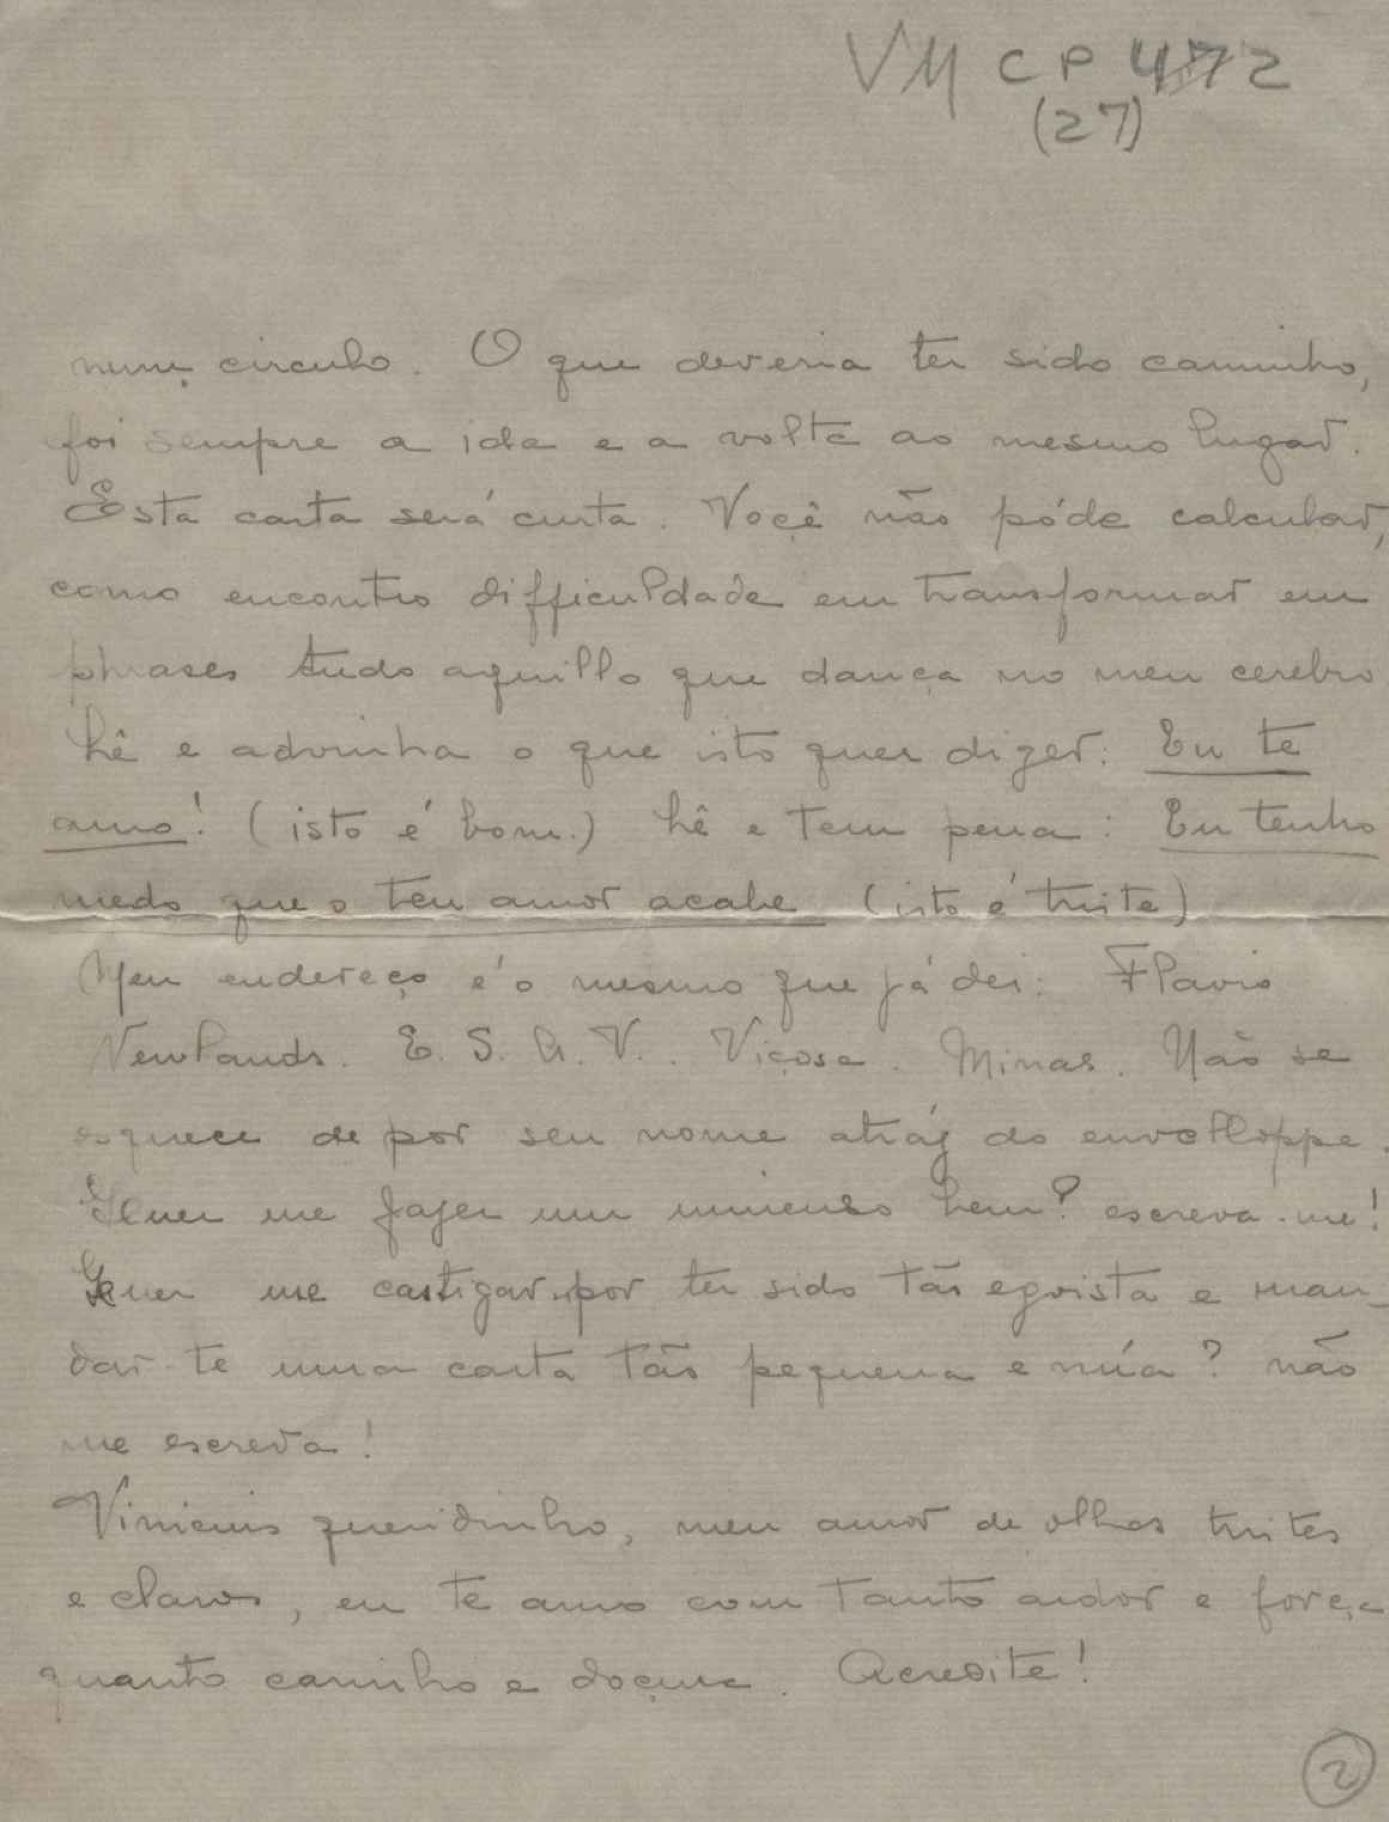 VM CP 472
(27)
num circulo. O que deveria ter sido caminho,
foi sempre a ida e a volta ao mesmo lugar.
Esta carta será curta. Você não póde calcular,
como encontro difficuldade em transformar em
phrases tudo aquillo que dança no meu cerebro
Lê e advinha o que isto quer dizer: Eu te
amo! (isto é bom.) Lê e tem pena: Eu tenho
medo que o teu amor acabe (isto é triste)
Meu endereço é o mesmo que já dei: Flavio
Newlands. E. S. A. V.. Viçosa. Minas. Não se
esquece de por seu nome atráz do envelloppe.
Quer me fazer um immenso bem? escreva-me!
Quer me castigar por ter sido tão egoista e man-
dar-te uma carta tão pequena e núa? não
me escreva!
Vinicius queridinho, meu amor de olhos tristes
e claros, eu te amo com tanto ardor e força
quanto carinho e doçura. Acredite!
2